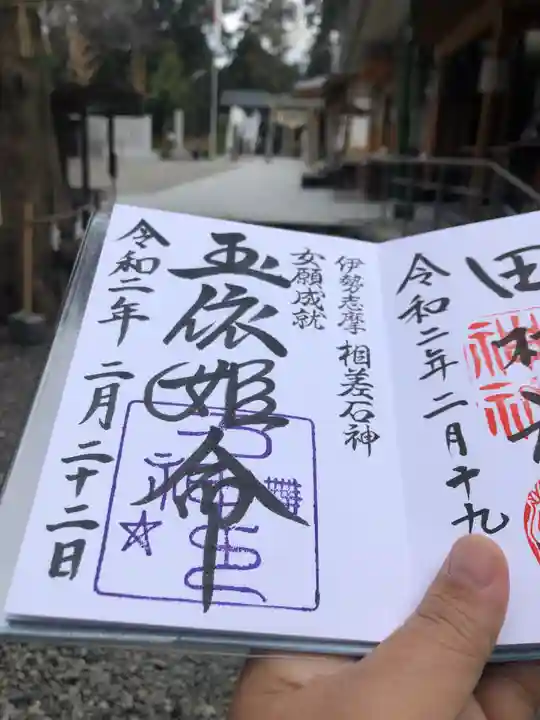 田村
令和二年二月十九
伊勢志摩 相差石神
女願成就
玉依姫命
令和二年 二月二十二日